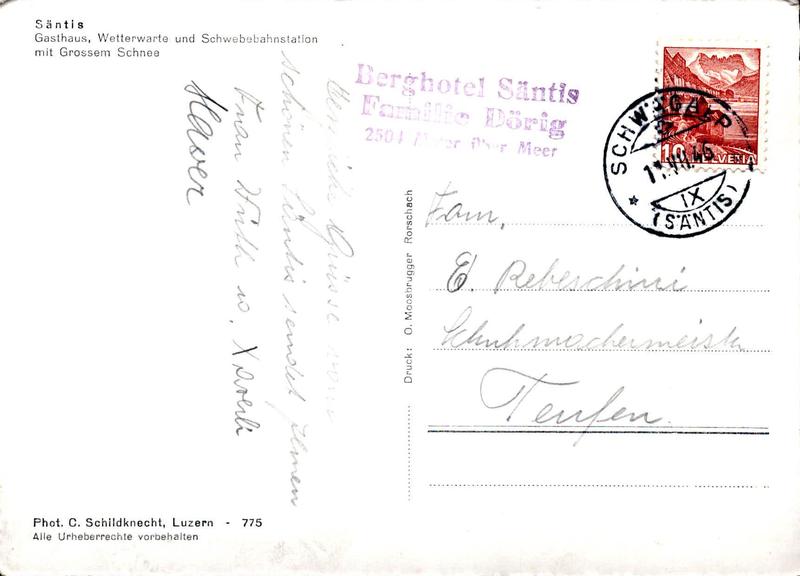 Säntis
Gasthaus, Wetterwarte und Schwebebahnstation
mit Grossem Schnee
Berghotel Säntis
Familie Dörig
2504 Meter über Meer
SCHWÄGALP
IX
(SÄNTIS)
10 HELVETIA
Grüsse vom
schönen Säntis sendet Ihnen
Frau
Fam.
E. Rebeschini
Schuhmachermeister
Teufen.
Druck: O. Moosbrugger Rorschach
Phot. C. Schildknecht, Luzern - 775
Alle Urheberrechte vorbehalten